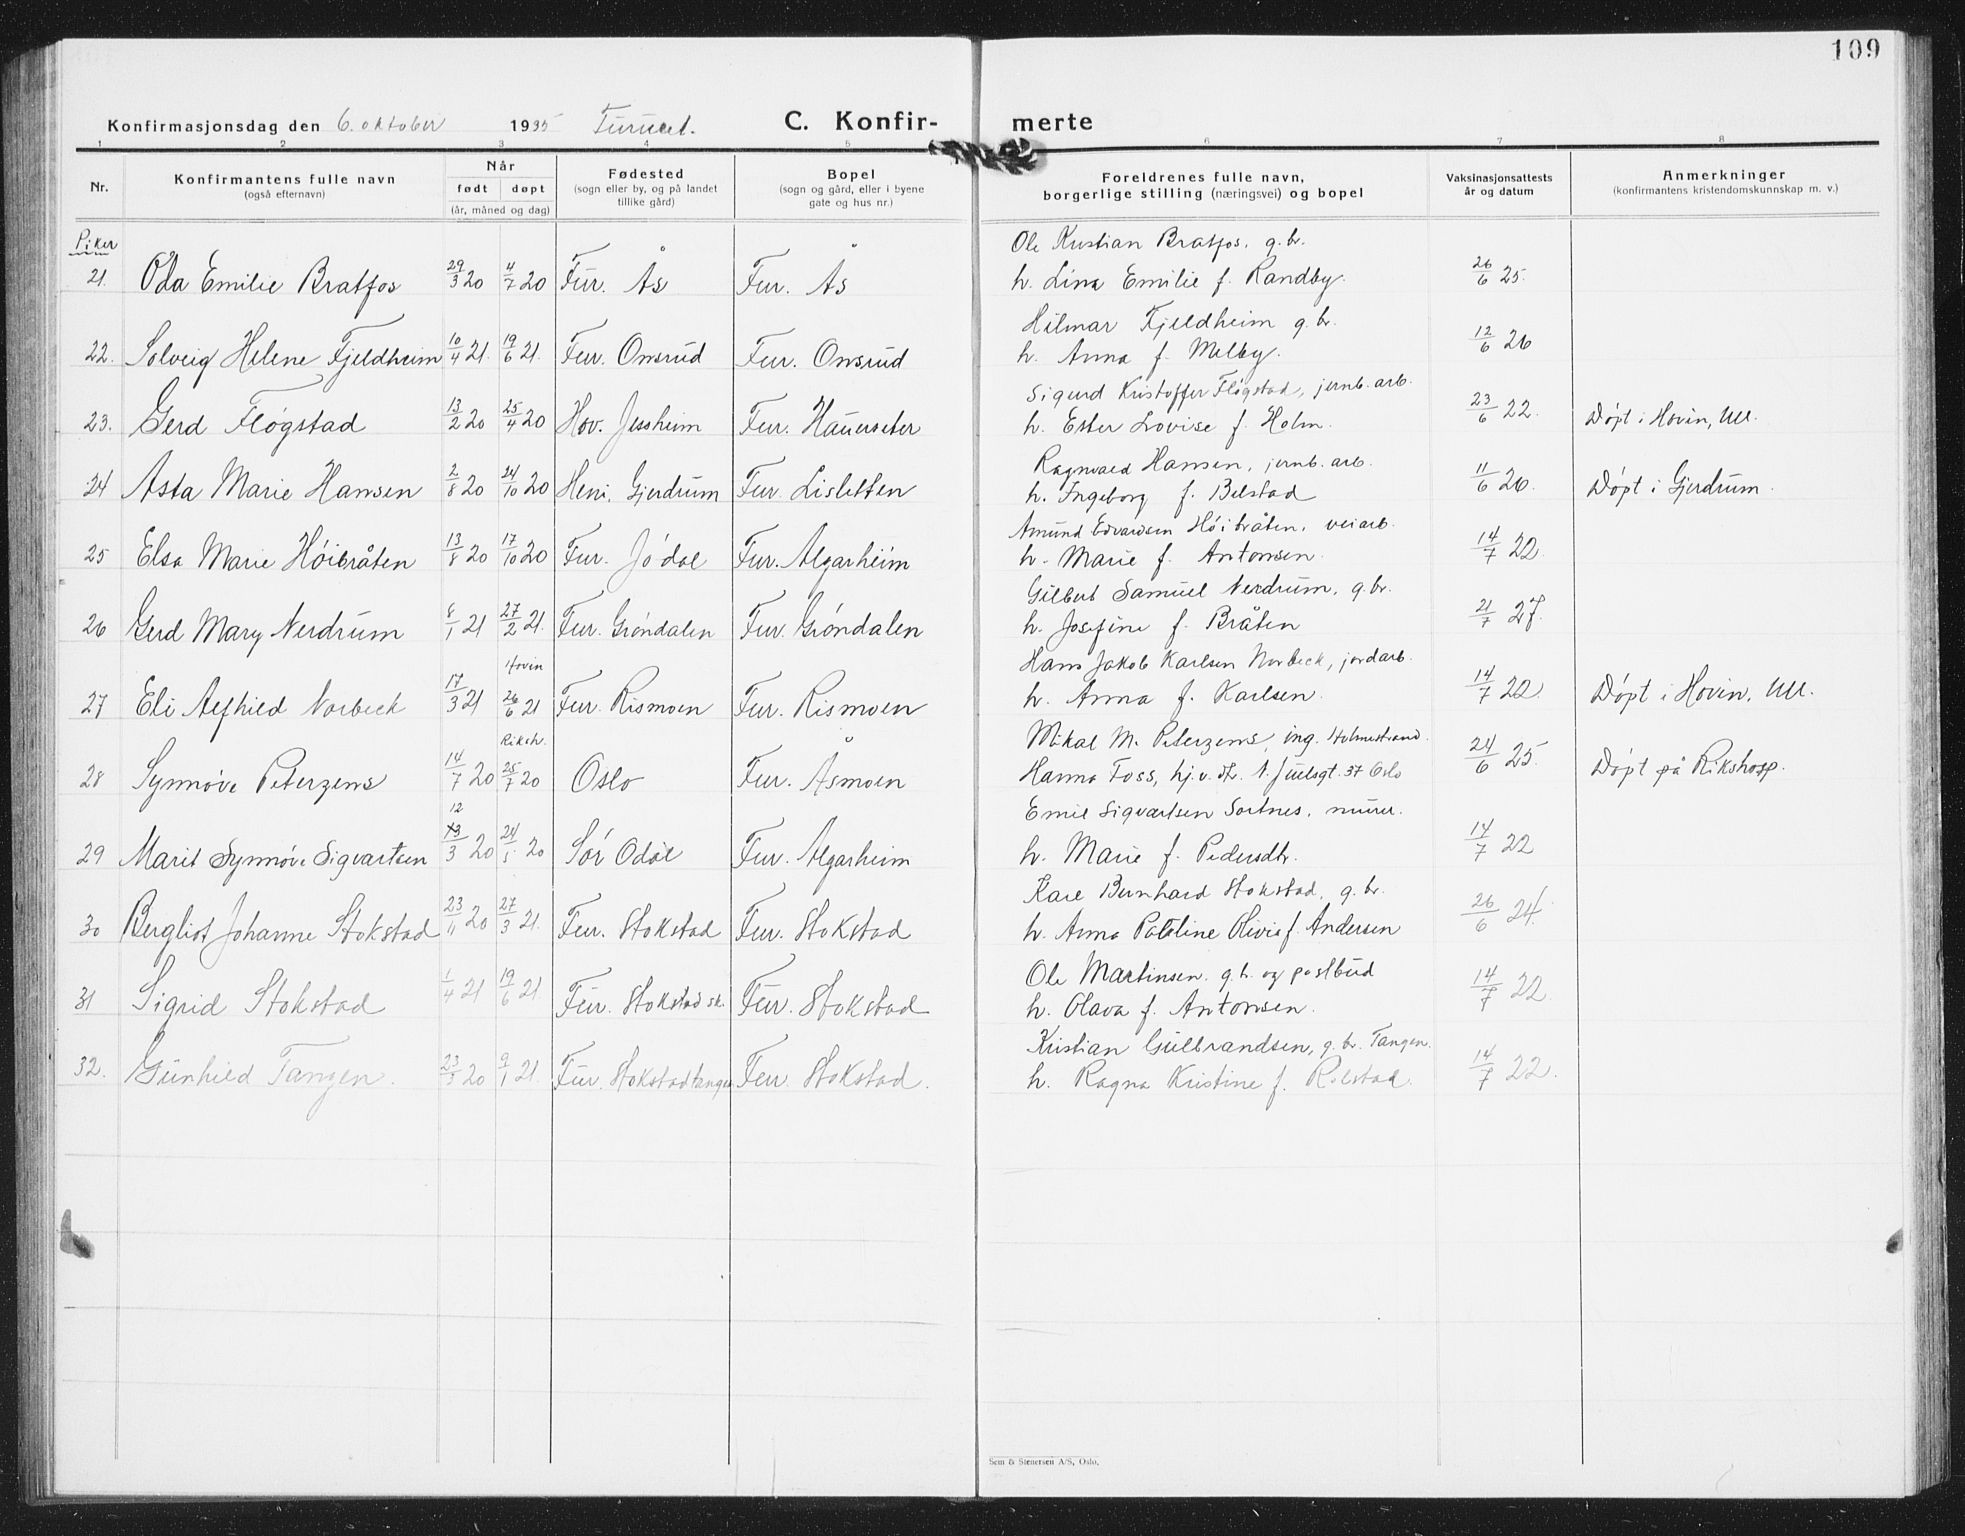 109
Konfirmasjonsdag den 6. oktober 1935 Furuset.
C. Konfirmerte
1 2 3 4 5 6 7 8
Nr. Konfirmantens fulle navn (også efternavn) Når født døpt (år, måned og dag) Fødested (sogn eller by, og på landet tillike gård) Bopel (sogn og gård, eller i byene gate og hus nr.) Foreldrenes fulle navn, borgerlige stilling (næringsvei) og bopel Vaksinasjonsattests år og datum Anmerkninger (konfirmantens kristendomskunnskap m. v.)
Piker
Ole Kristian Bratfos, g.br.
21. Oda Emilie Bratfos 29/3 20 4/7 20 Fur. Ås Fur. Ås h. Lina Emilie f. Randby. 26/6 25.
Hilmar Fjeldheim g.br.
22. Solveig Helene Fjeldheim 10/4 21. 19/6 21. Fur. Onsrud Fur. Onsrud h. Anna f. Melby. 12/6 26
Sigurd Kristoffer Fløgstad, jernb. arb.
23. Gerd Fløgstad 13/2 20 25/4 20 Hov. Jessheim Fur. Hauerseter h. Ester Lovise f. Holm. 23/6 22. Døpt i Hovin, Ull.
Ragnvald Hansen, jernb. arb.
24 Asta Marie Hansen 2/8 20 24/10 20 Heni, Gjerdrum Fur. Lisletten h. Ingeborg f. Bilstad 11/6 26. Døpt i Gjerdrum.
Amund Edvardsen Høibråten, veiarb.
25 Elsa Marie Høibråten 13/8 20 17/10 20 Fur. Jødal Fur. Algarheim h. Marie f. Antonsen. 14/7 22.
Gilbert Samuel Nerdrum, g.br.
26 Gerd Mary Nerdrum 8/1 21 27/2 21. Fur. Grøndalen Fur. Grøndalen h. Josefine f. Bråten 21/7 27.
Hovin Hans Jakob Karlsen Norbeck, jordarb.
27 Eli Alfhild Norbeck 17/3 21 26/6 21 Fur. Rismoen Fur. Rismoen h. Anna f. Karlsen. 14/7 22 Døpt i Hovin, Ull.
Riksh. Mikal M. Peterzens, ing. Holmestrand.
28 Synnøve Peterzens 14/7 20 25/7 20 Oslo Fur. Åsmoen Hanna Foss, hj.v. str. N. Juulsgt. 37 Oslo 24/6 25. Døpt på Rikshosp.
12 Emil Sigvartsen Sortnes, murer.
29 Marit Synnøve Sigvartsen 13/3 20 24/5 20 Sør Odal Fur. Algarheim h. Marie f. Pedersdtr. 14/7 22
Kåre Bernhard Stokstad, g.br.
30 Bergliot Johanne Stokstad 23/11 20 27/3 21. Fur. Stokstad Fur. Stokstad h. Anna Pauline Olivie f. Andersen 26/6 24.
Ole Martinsen. g.br. og postbud
31 Sigrid Stokstad 1/4 21 19/6 21 Fur. Stokstad sk. Fur. Stokstad h. Olava f. Antonsen. 14/7 22.
Kristian Gulbrandsen, g.br. Tangen.
32. Gunhild Tangen. 23/3 20 9/1 21. Fur. Stokstadtangen Fur. Stokstad. h. Ragna Kristine f. Rolstad. 14/7 22.
Sem & Stenersen A/S, Oslo.